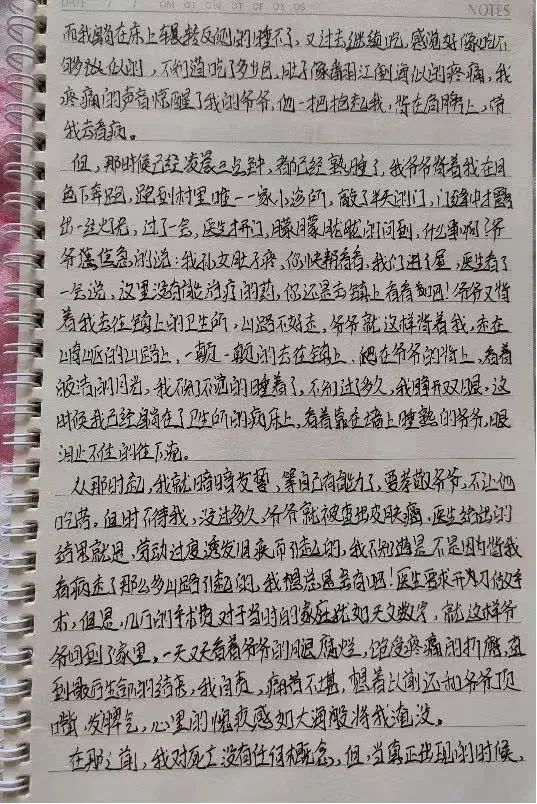 DATE / / MO TU WE TH FR SA SU NOTES
而我躺在床上辗转反侧的睡不了，又过去继续吃，感觉好像吃不
够似的，不知道吃了多少回，肚子像翻江倒海似的疼痛，我
疼痛的声音惊醒了我的爷爷，他一把抱起我，背在肩膀上，带
我去看病。
但，那时候已经凌晨三点钟，都已经熟睡了，我爷爷背着我在月
色下奔跑，跑到村里唯一一家小诊所，敲了半天的门，门缝中才露
出一丝灯光，过了一会，医生打开门，朦朦胧胧的问到，什么事啊？爷
爷焦急的说：我孙女肚子疼，你快帮看看，我们进了屋，医生看了
一会说，这里没有能治疗的药，你还是去镇上看看如何！爷爷又背
着我去往镇上的卫生所，山路不好走，爷爷就这样背着我，赤在
崎岖的山路上，一颠一颠的去往镇上，趴在爷爷的背上，看着
皎洁的月光，我不知不觉的睡着了，不知过了多久，我睁开双眼，这
时候我已经躺在了卫生所的病床上，看着靠在墙上睡熟的爷爷，眼
泪止不住的往下流。
从那时起，我就暗暗发誓，等自己有能力了，要孝敬爷爷，不让他
吃苦，但时不待我，没过多久，爷爷就被查出皮肤癌，医生给出的
结果就是，劳动过度诱发旧疾而引起的，我不知道是不是因为背我
看病走了那么多山路引起的，我想总是会有吧！医生要求开刀做手
术，但是，几万的手术费对于当时的家庭犹如天文数字，就这样爷
爷回到了家里，一天又一天看着爷爷的腿腐烂，饱受疼痛的折磨，直
到最后生命的结束，我自责，痛苦不堪，想着以前还和爷爷顶
嘴，发脾气，心里的愧疚感如大海般将我淹没。
在那之前，我对死亡没有任何概念，但，当真正出现的时候，